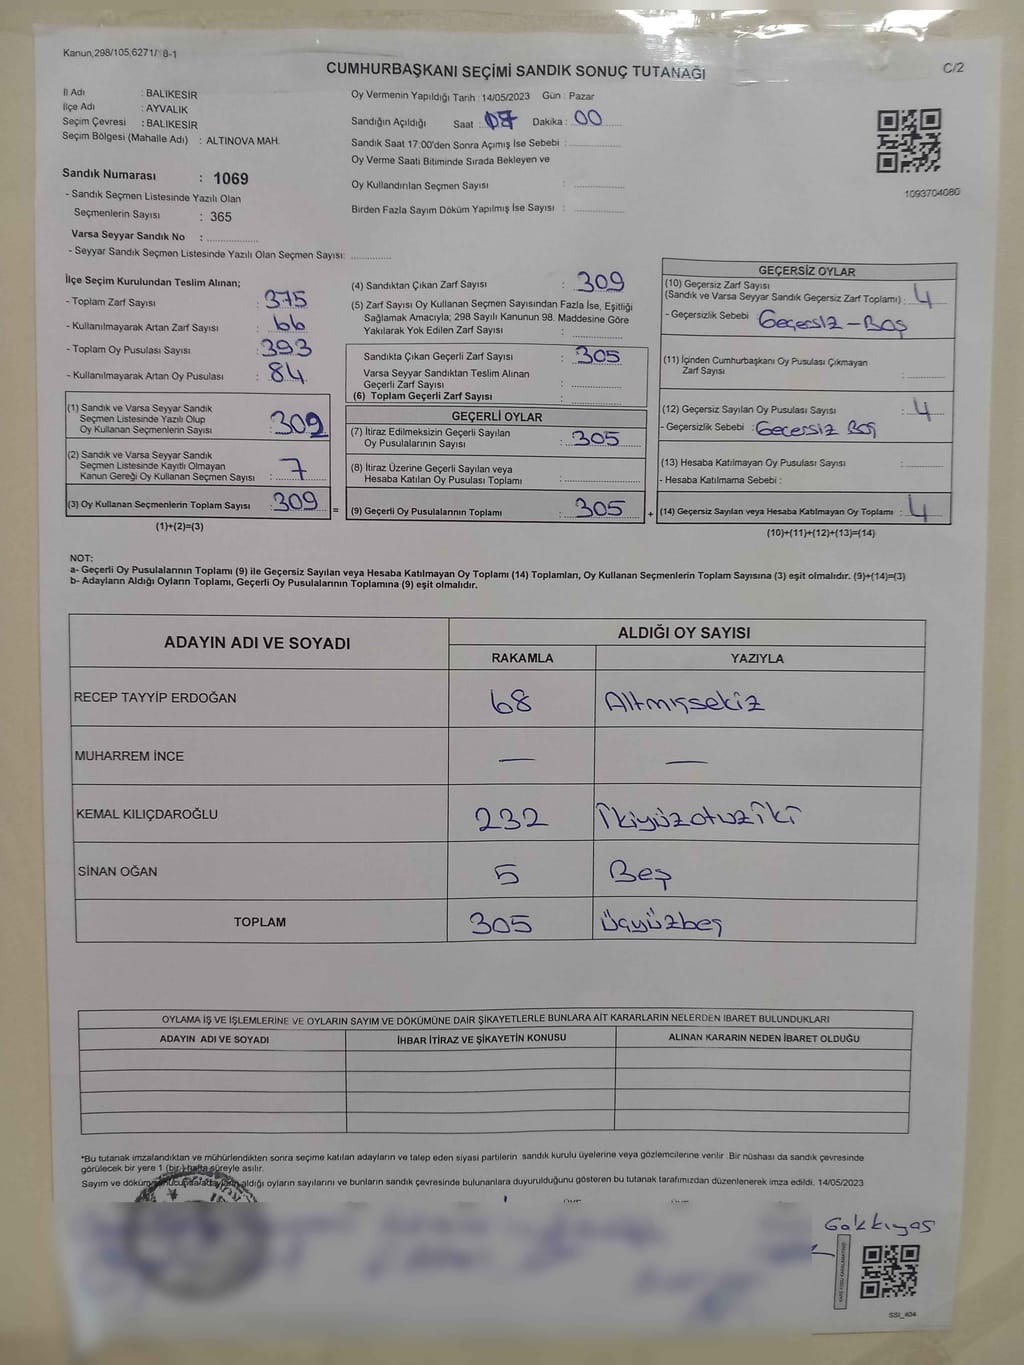 Kanun,298/105,6271/ 8-1
C/2
CUMHURBAŞKANI SEÇİMİ SANDIK SONUÇ TUTANAĞI
İl Adı : BALIKESİR
İlçe Adı : AYVALIK
Seçim Çevresi : BALIKESİR
Seçim Bölgesi (Mahalle Adı) : ALTINOVA MAH.
Sandık Numarası : 1069
- Sandık Seçmen Listesinde Yazılı Olan
Seçmenlerin Sayısı : 365
Varsa Seyyar Sandık No : ................
- Seyyar Sandık Seçmen Listesinde Yazılı Olan Seçmen Sayısı: ............
Oy Vermenin Yapıldığı Tarih : 14/05/2023 Gün : Pazar
Sandığın Açıldığı Saat : 07 Dakika : 00
Sandık Saat 17:00'den Sonra Açımış İse Sebebi : ................
Oy Verme Saati Bitiminde Sırada Bekleyen ve
Oy Kullandırılan Seçmen Sayısı : ................
Birden Fazla Sayım Döküm Yapılmış İse Sayısı : ................
1093704080
İlçe Seçim Kurulundan Teslim Alınan;
- Toplam Zarf Sayısı : 375
- Kullanılmayarak Artan Zarf Sayısı : 66
- Toplam Oy Pusulası Sayısı : 393
- Kullanılmayarak Artan Oy Pusulası : 84
(1) Sandık ve Varsa Seyyar Sandık
Seçmen Listesinde Yazılı Olup
Oy Kullanan Seçmenlerin Sayısı : 309
(2) Sandık ve Varsa Seyyar Sandık
Seçmen Listesinde Kayıtlı Olmayan
Kanun Gereği Oy Kullanan Seçmen Sayısı : 7
(3) Oy Kullanan Seçmenlerin Toplam Sayısı : 309 =
(1)+(2)=(3)
(4) Sandıktan Çıkan Zarf Sayısı : 309
(5) Zarf Sayısı Oy Kullanan Seçmen Sayısından Fazla İse, Eşitliği
Sağlamak Amacıyla; 298 Sayılı Kanunun 98. Maddesine Göre
Yakılarak Yok Edilen Zarf Sayısı : ................
Sandıkta Çıkan Geçerli Zarf Sayısı : 305
Varsa Seyyar Sandıktan Teslim Alınan
Geçerli Zarf Sayısı : ................
(6) Toplam Geçerli Zarf Sayısı : ................
GEÇERLİ OYLAR
(7) İtiraz Edilmeksizin Geçerli Sayılan
Oy Pusulalarının Sayısı : 305
(8) İtiraz Üzerine Geçerli Sayılan veya
Hesaba Katılan Oy Pusulası Toplamı : ................
(9) Geçerli Oy Pusulalarının Toplamı : 305 +
GEÇERSİZ OYLAR
(10) Geçersiz Zarf Sayısı
(Sandık ve Varsa Seyyar Sandık Geçersiz Zarf Toplamı) : 4
- Geçersizlik Sebebi Geçersiz - Boş
(11) İçinden Cumhurbaşkanı Oy Pusulası Çıkmayan
Zarf Sayısı : ............
(12) Geçersiz Sayılan Oy Pusulası Sayısı : 4
- Geçersizlik Sebebi : Geçersiz Boş
(13) Hesaba Katılmayan Oy Pusulası Sayısı : ............
- Hesaba Katılmama Sebebi :
(14) Geçersiz Sayılan veya Hesaba Katılmayan Oy Toplamı : 4
(10)+(11)+(12)+(13)=(14)
NOT:
a- Geçerli Oy Pusulalarının Toplamı (9) ile Geçersiz Sayılan veya Hesaba Katılmayan Oy Toplamı (14) Toplamları, Oy Kullanan Seçmenlerin Toplam Sayısına (3) eşit olmalıdır. (9)+(14)=(3)
b- Adayların Aldığı Oyların Toplamı, Geçerli Oy Pusulalarının Toplamına (9) eşit olmalıdır.
ADAYIN ADI VE SOYADI
ALDIĞI OY SAYISI
RAKAMLA YAZIYLA
RECEP TAYYİP ERDOĞAN 68 Altmışsekiz
MUHARREM İNCE — —
KEMAL KILIÇDAROĞLU 232 İkiyüzotuziki
SİNAN OĞAN 5 Beş
TOPLAM 305 Üçyüzbeş
OYLAMA İŞ VE İŞLEMLERİNE VE OYLARIN SAYIM VE DÖKÜMÜNE DAİR ŞİKAYETLERLE BUNLARA AİT KARARLARIN NELERDEN İBARET BULUNDUKLARI
ADAYIN ADI VE SOYADI İHBAR İTİRAZ VE ŞİKAYETİN KONUSU ALINAN KARARIN NEDEN İBARET OLDUĞU
*Bu tutanak imzalandıktan ve mühürlendikten sonra seçime katılan adayların ve talep eden siyasi partilerin sandık kurulu üyelerine veya gözlemcilerine verilir. Bir nüshası da sandık çevresinde
görülecek bir yere 1 (bir) hafta süreyle asılır.
Sayım ve döküm sonucu adayların aldığı oyların sayılarını ve bunların sandık çevresinde bulunanlara duyurulduğunu gösteren bu tutanak tarafımızdan düzenlenerek imza edildi. 14/05/2023
SSI_404